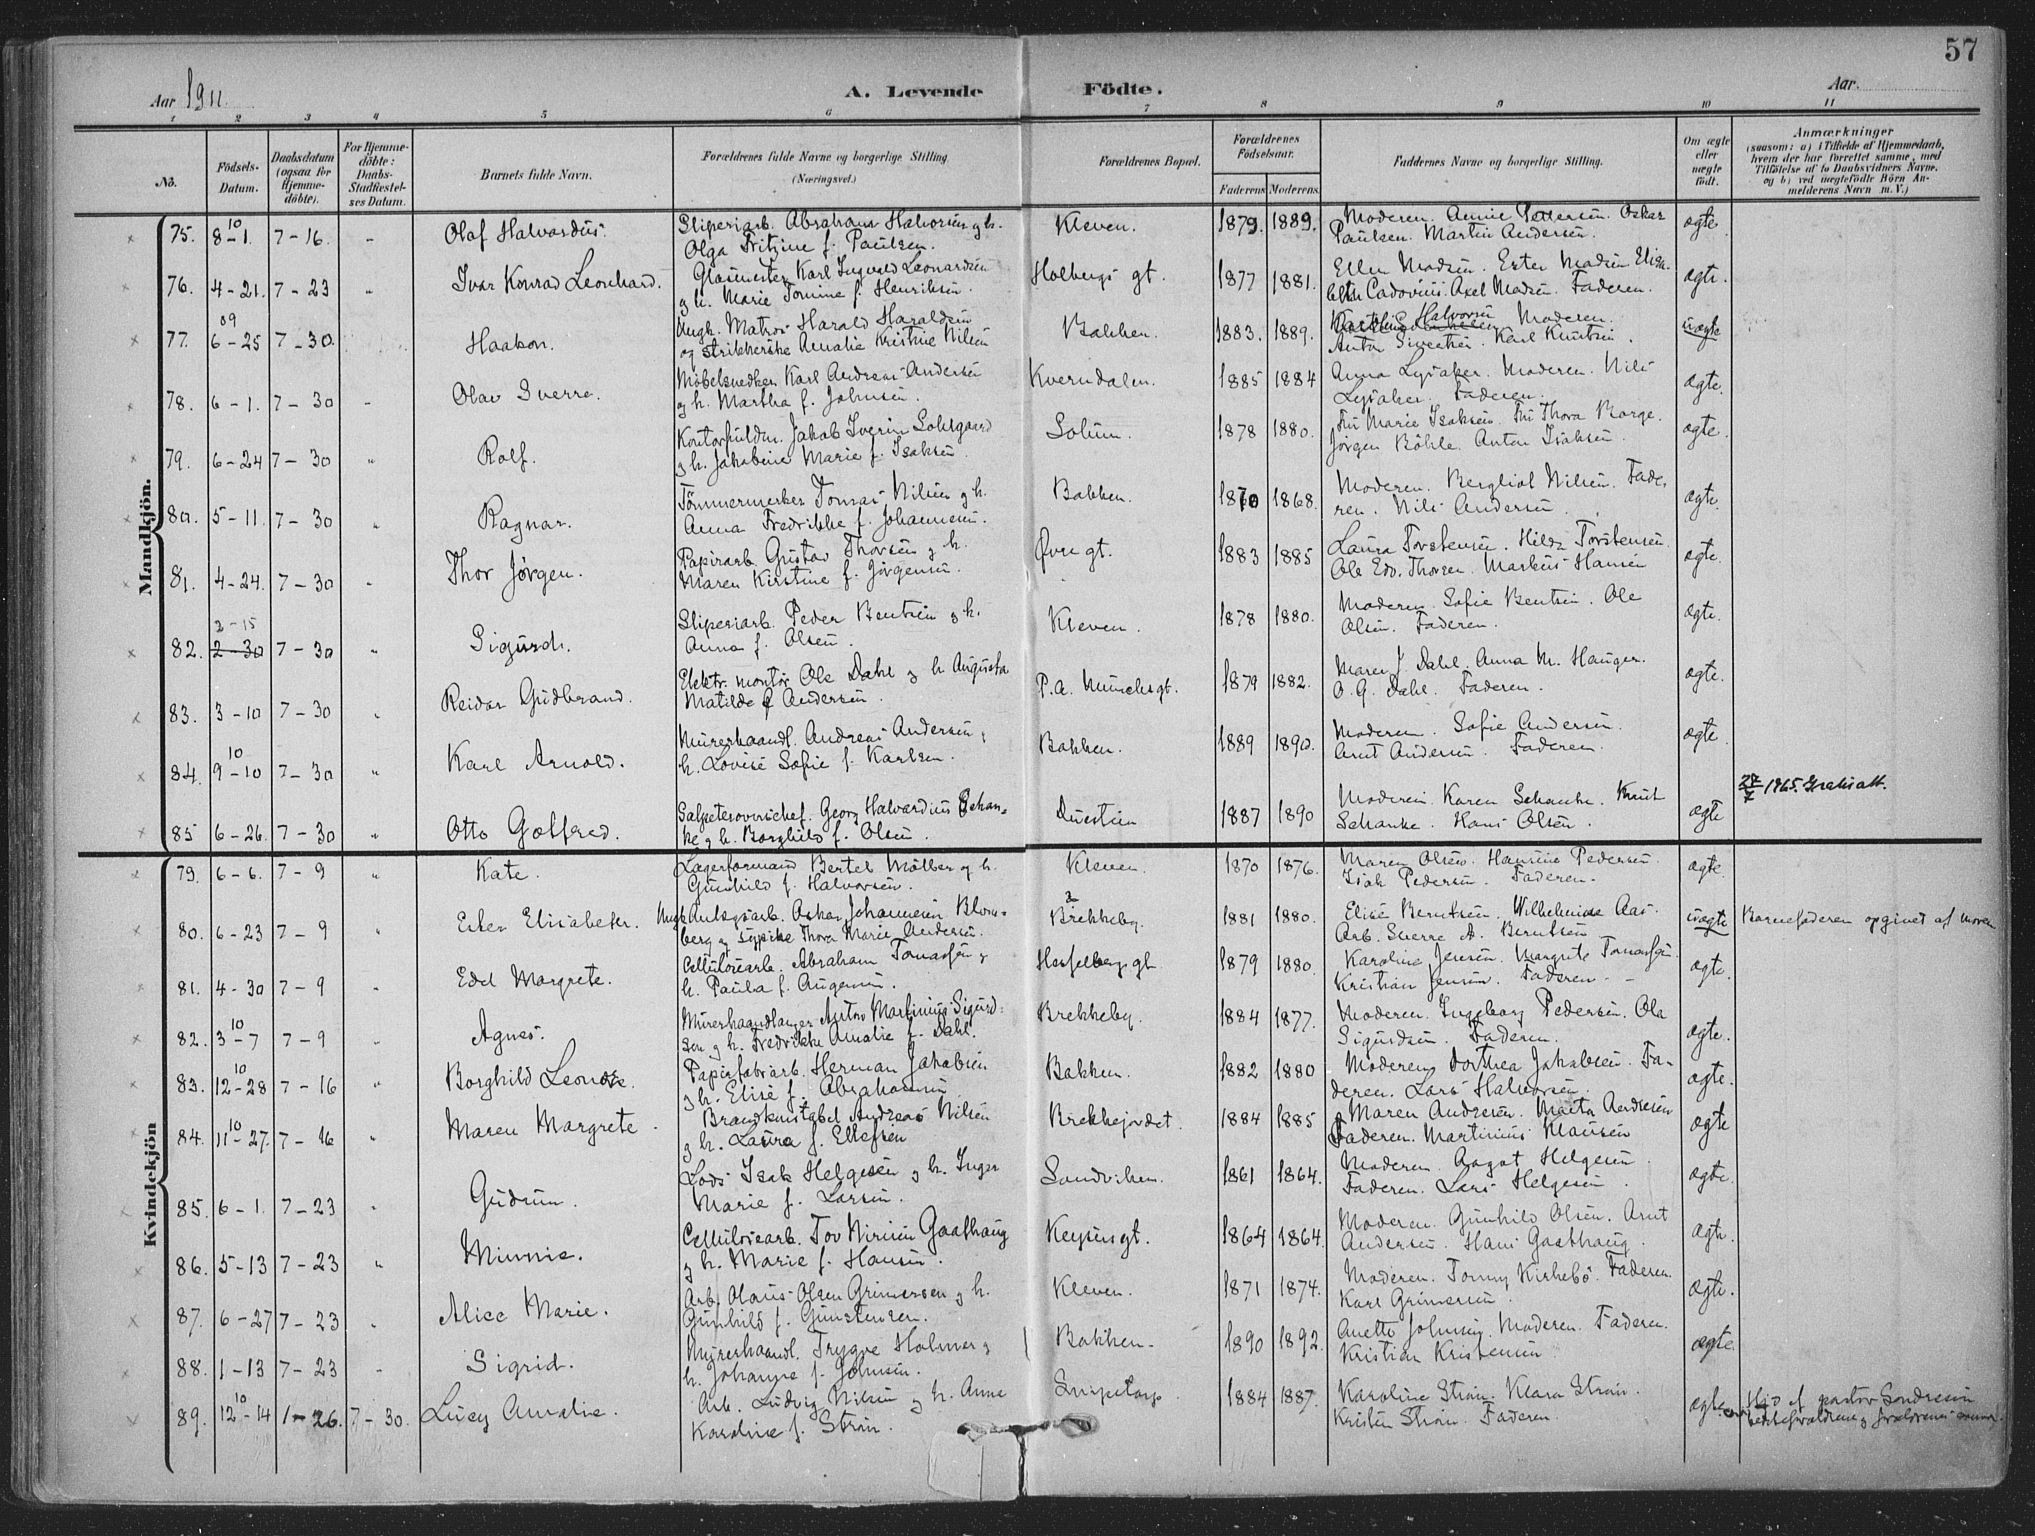 57
Aar 1911.
A. Levende Födte.
Aar
1 2 3 4 5 6 7 8 9 10 11
No.
Födsels-
Datum.
Daabsdatum
(ogsaa for
Hjemme-
döbte).
For Hjemme-
döbte:
Daabs-
Stadfæstel-
ses Datum.
Barnets fulde Navn.
Forældrenes fulde Navne og borgerlige Stilling.
(Næringsvei.)
Forældrenes Bopæl.
Forældrenes
Födselsaar.
Faderens Moderens.
Faddernes Navne og borgerlige Stilling.
Om ægte
eller
uægte
födt.
Anmærkninger
(saasom: a) i Tilfælde af Hjemmedaab,
hvem der har forrettet samme, med
Tilföielse af to Daabsvidners Navne,
og b) ved uægtefödte Börn An-
melderens Navn m. V.)
Mandkjön.
75. 8-1. 10 7-16. Olaf Halvardus. Sliperiarb. Abraham Halvorsen g h.
Olga Fritzine f. Paulsen. Kleven. 1879. 1889. Moderen. Annie Pettersen. Oskar
Paulsen. Martin Andersen. ægte
76. 4-21. 7-23 Ivar Konrad Leonhard. Glasmester Karl Ingvald Leonardsen
g h. Marie Tomine f. Henriksen. Holbergs gt. 1877 1881. Ellen Madsen. Ester Madsen Elisa-
beth Cadovius. Axel Madsen. Faderen. ægte.
77. 6-25 09 7-30. Haakon. Ungk. Matros Harald Haraldsen
og strikkerske Amalie Kristine Nilsen Bakken. 1883. 1889. Halvorsen Moderen.
Anton Sivertsen. Karl Knutsen. uægte
78. 6-1. 7-30 Olav Sverre. Möbelsnedker Karl Andreas Andersen
g h. Martha f. Johnsen. Kverndalen. 1885 1884 Anna Lysaker. Moderen. Nils
Lysaker. Faderen. ægte.
79. 6-24 7-30 Rolf. Kontorfuldm. Jakob Iverin Solegaard
g h. Jakobine Marie f. Isaksen. Solum. 1878 1880. Frü Marie Isaksen. Frü Thora Borge.
Jörgen Böhle. Anton Isaksen. ægte.
80. 5-11. 7-30 Ragnar. Tömmermerker Tomas Nilsen g h.
Anna Fredrikke f. Johannesen. Bakken. 1870 1868. Moderen. Bergliot Nilsen. Fade-
ren. Nils Andersen. ægte.
81. 4-24. 7-30 Thor Jörgen. Papirarb. Gustav Thorsen g h.
Maren Kirstine f. Jörgensen. Övregt. 1883 1885 Laura Torstensen. Hilda Torstensen.
Ole Edv. Thorsen. Markus Hansen ægte.
82. 2-30 2-15 7-30 Sigurd. Sliperiarb. Peder Bentsen g h.
Anna f. Olsen. Kleven. 1878 1880. Moderen. Sofie Bentsen. Ole
Olsen. Faderen. ægte.
83. 3-10 7-30 Reidar Gudbrand. Elektr. montör Ole Dahl g h Augusta
Matilde f Andersen. P.A. Munchsgt. 1879 1882. Maren J Dahl. Anna M. Hauger.
O. G. Dahl. Faderen. ægte.
84. 9-10 10 7-30 Karl Arnold. Murerhaandl. Andreas Andersen g
h. Lovise Sofie f. Karlsen. Bakken. 1889 1890. Moderen. Sofie Andersen.
Arnt Andersen. Faderen. ægte
85 6-26. 7-30 Otto Gotfred. Georg Halvardius Schan-
ke g h. Borghild f. Olsen. 1887 1890 Moderen. Karen Schanke. Knut
Schanke. Hans Olsen. ægte 28/7 1965. Gratisatt.
Kvindekjön
79. 6-6. 7-9 Kate. Lagerformand Bertel Möller g h.
Gunhild f. Halvorsen. Kleven. 1870 1876. Maren Olsen. Hansine Pedersen.
Isak Pedersen. Faderen. ægte.
80. 6-23 7-9 Ester Elisabeth. Ungk. Anlegsarb. Oskar Johannesen Blom-
berg og sypike Thora Marie Andersen. Brekkeby. 1881 1880. Elise Berntsen. Wilhelmine Aas.
Arb. Sverre A. Berntsen uægte Barnefaderen opgivet af moren
81. 4-30 7-9 Edel Margrete. Cellulosearb. Abraham Tomassen g
h. Paula f. Hesselbergs gt. 1879 1880. Karoline Jensen. Margrete Tomassen.
Kristian Jensen. Faderen. ægte.
82. 3-7 10 7-9 Agnes. Murerhaandlanger Anton Martinius Sigurd-
sen g h. Fredrikke Amalie f. Dahl. Brekkeby. 1884 1877. Moderen. Ingeborg Pedersen. Ola
Sigurdsen. Faderen. ægte.
83. 12-28 10 7-16 Borghild Leonore. Papirfabrarb. Herman Jakobsen
g h. Elise f. Abrahamsen Bakken. 1882 1880 Moderen. Dorthea Jakobsen. Fa-
deren. Lars Halvorsen. ægte.
84. 11-27. 10 7-16 Maren Margrete. Brandkonstabel Andreas Nilsen
g h. Laura f. Ellefsen Brekkejordet. 1884 1885 Maren Andresen. Marta Andresen
Faderen. Martinius Klausen ægte
85. 6-1. 7-23 Gudrun. Lods Isak Helgesen g h. Inger
Marie f. Larsen. Sandviken. 1861 1864. Moderen. Aagot Helgesen.
Faderen. Lars Helgesen. ægte.
86. 5-13 7-23 Minnie. Cellulosearb. Tov Gaathaug
g h. Marie f. Hansen. Keysersgt. 1864 1864. Moderen. Gunhild Olsen. Arnt
Andersen. Hans Gaathaug. ægte.
87. 6-27 7-23 Alice Marie. Arb. Olaus Olsen Grimersen g h.
Gunhild f. Gunstensen. Kleven. 1871 1874. Moderen. Tomy Kirkebö. Faderen.
Karl Grimersen. ægte.
88. 1-13 7-23 Sigrid. Murerhaandl. Trygve Holmer g
h. Johanne f. Johnsen. Bakken. 1890 1892. Anette Johnsen. Moderen. Faderen.
Kristian Kristensen ægte.
89. 12-14 10 1-26. 7-30. Lucy Amalie. Arb. Ludvig Nilsen g h. Anne
Karoline f. Ström. Snipetorp. 1884 1887. Karoline Ström. Klara Ström.
Kristen Ström. Faderen. ægte. af pastor Sondresen